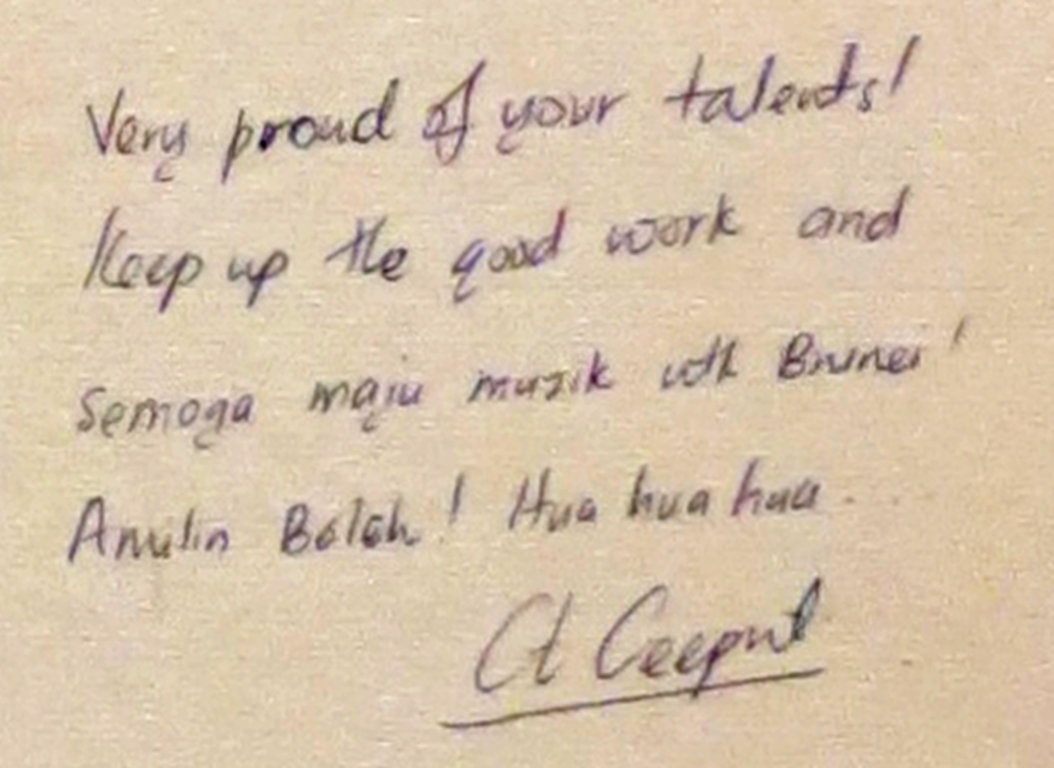 Very proud of your talents!
Keep up the good work and
Semoga maju muzik utk Brunei!
Boleh! Hua hua hua...